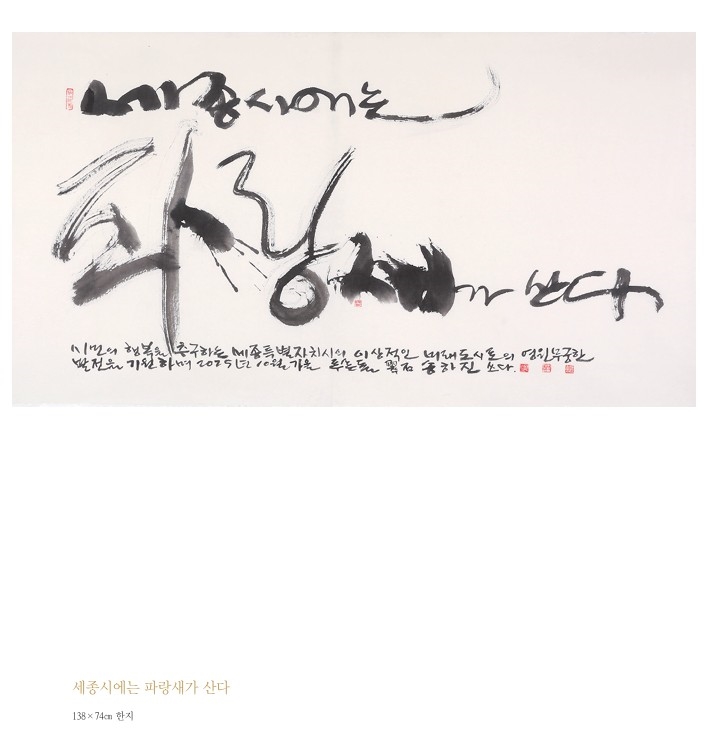 세종시에는
파랑새가 산다
시민의 행복을 추구하는 세종특별자치시의 이상적인 미래도시로의 영원무궁한
발전을 기원하며 2025년 10월 가을 푸른돌 翠石 송하진 쓰다.
세종시에는 파랑새가 산다
138×74㎝ 한지